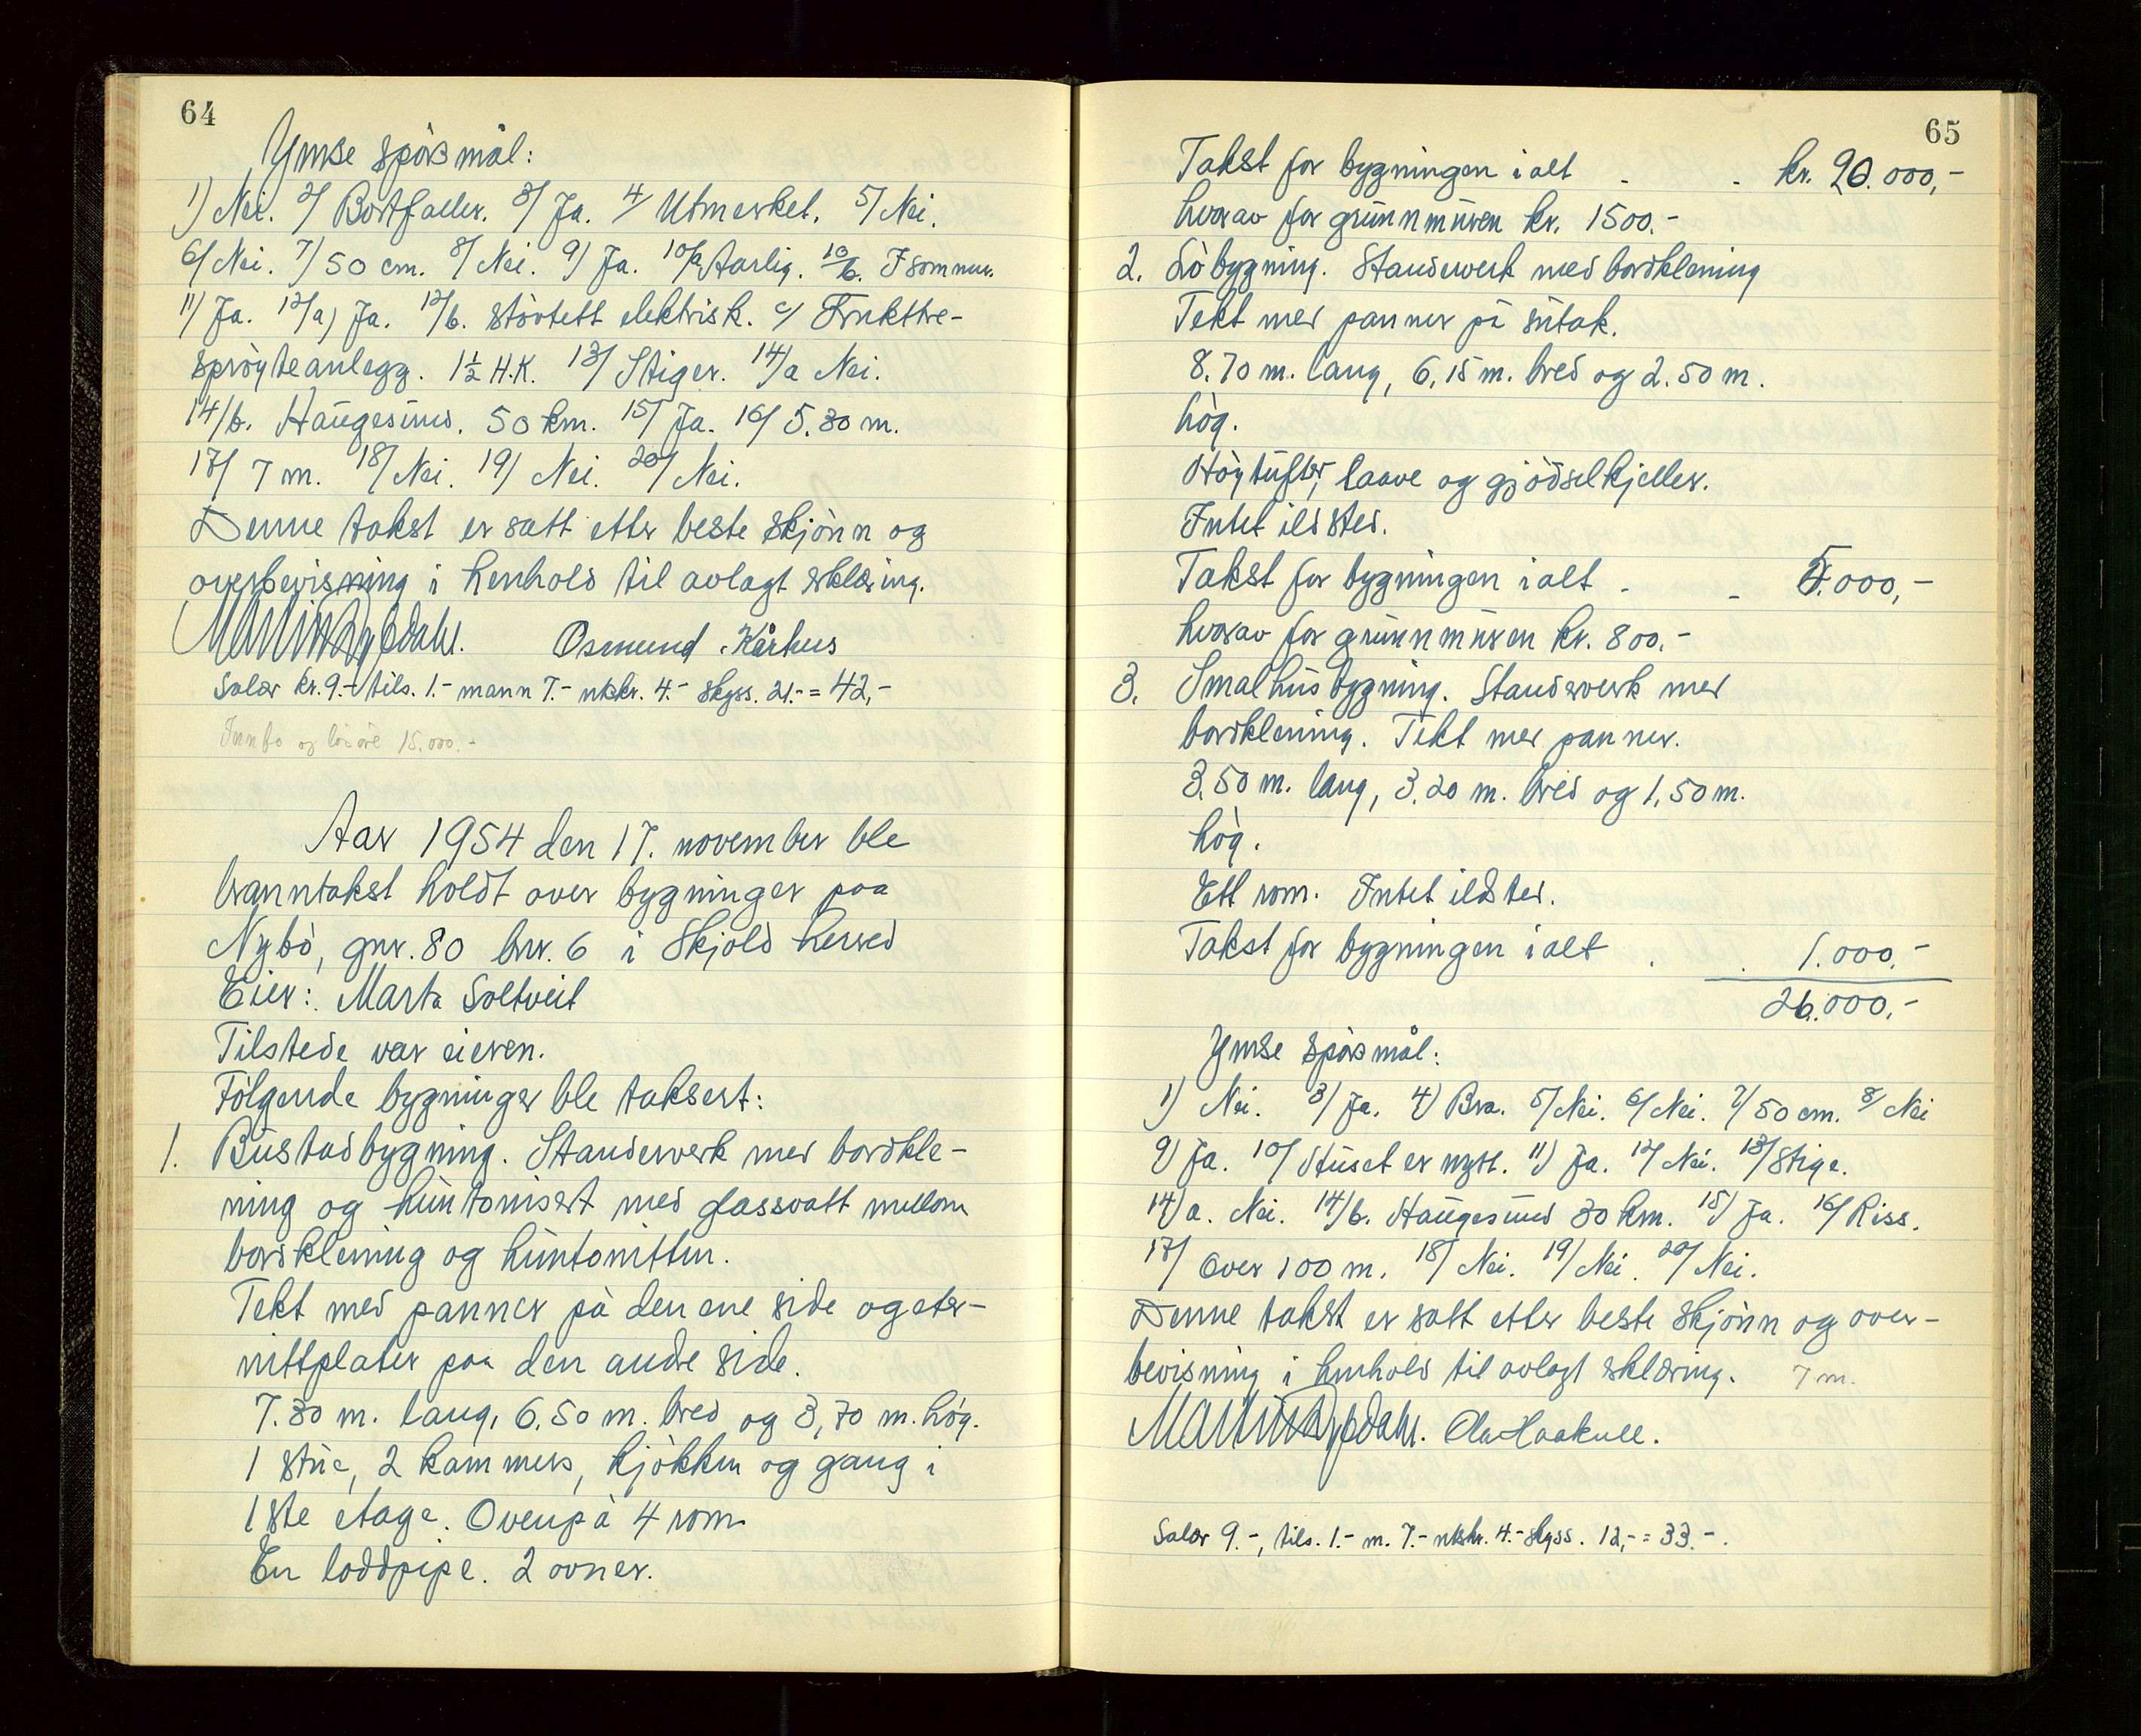 64
Ymse spörsmål:
1) Nei. 2/ Bortfaller. 3/ Ja. 4/ Utmerket. 5/ Nei.
6/ Nei. 7/ 50 cm. 8/ Nei. 9) Ja. 10/a Aarlig. 10/b. I sommer.
11/ Ja. 12/a) Ja. 12/b. Stövtett elektrisk. c/ Frukttre-
spröyteanlegg. 1½ H.K. 13/ Stiger. 14/a Nei.
14/b. Haugesund. 50 km. 15/ Ja. 16/ 5.30 m.
17/ 7 m. 18/ Nei. 19/ Nei. 20/ Nei.
Denne takst er satt etter beste skjönn og
overbevisning i henhold til avlagt erklæring.
Osmund Kårhus
Salær kr. 9.- tils. 1.- mann 7.- utskr. 4.- skyss. 21.- = 42,-
Innbo og lösöre 15.000.-
Aar 1954 den 17. november ble
branntakst holdt over bygninger paa
Nybö, gnr. 80 bnr. 6 i Skjold herred
Eier: Marta Soltveit
Tilstede var eieren.
Fölgende bygninger ble taksert:
1. Bustadbygning. Standerverk med bordkle-
ning og huntonisert med glassvatt mellom
bordklening og huntonitten.
Tekt med panner på den ene side og eter-
nittplater paa den andre side.
7.30 m. lang, 6,50 m. bred og 3,70 m. hög.
1 stue, 2 kammers, kjökken og gang i
1ste etage. Ovenpå 4 rom
En loddpipe. 2 ovner.
65
Takst for bygningen i alt . . kr. 20.000,-
hvorav for grunnmuren kr. 1500.-
2. Löbygning. Standerverk med bordklening
Tekt med panner på sutak.
8.70 m. lang, 6,15 m. bred og 2.50 m.
hög.
Höytufter, laave og gjödselkjeller.
Intet ildsted.
Takst for bygningen i alt . . 5.000,-
hvorav for grunnmuren kr. 800.-
3. Smalhusbygning. Standerverk med
bordklening. Tekt med panner.
3.50 m. lang, 3.20 m. bred og 1,50 m.
hög.
Ett rom. Intet ildsted.
Takst for bygningen i alt . . 1.000.-
26.000.-
Ymse spörsmål:
1) Nei. 3/ Ja. 4) Bra. 5/ Nei. 6/ Nei. 7/ 50 cm. 8/ Nei
9) Ja. 10/ Huset er nytt. 11) Ja. 12/ Nei. 13/ Stige.
14/a. Nei. 14/b. Haugesund 30 km. 15/ Ja. 16/ Riss.
17/ Over 100 m. 18/ Nei. 19/ Nei. 20/ Nei.
Denne takst er satt etter beste skjönn og over-
bevisning i henhold til avlagt erklæring. 7 m.
Salær 9.-, tils. 1.- m. 7.- utskr. 4.- skyss. 12,- = 33.-.